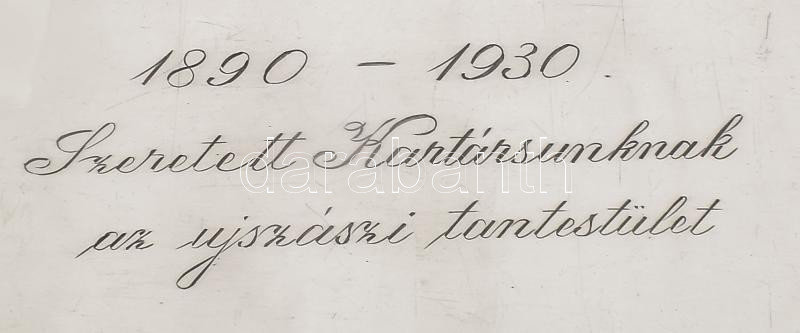 1890 - 1930.
Szeretett Kartársunknak
darabanth
az ujszászi tantestület